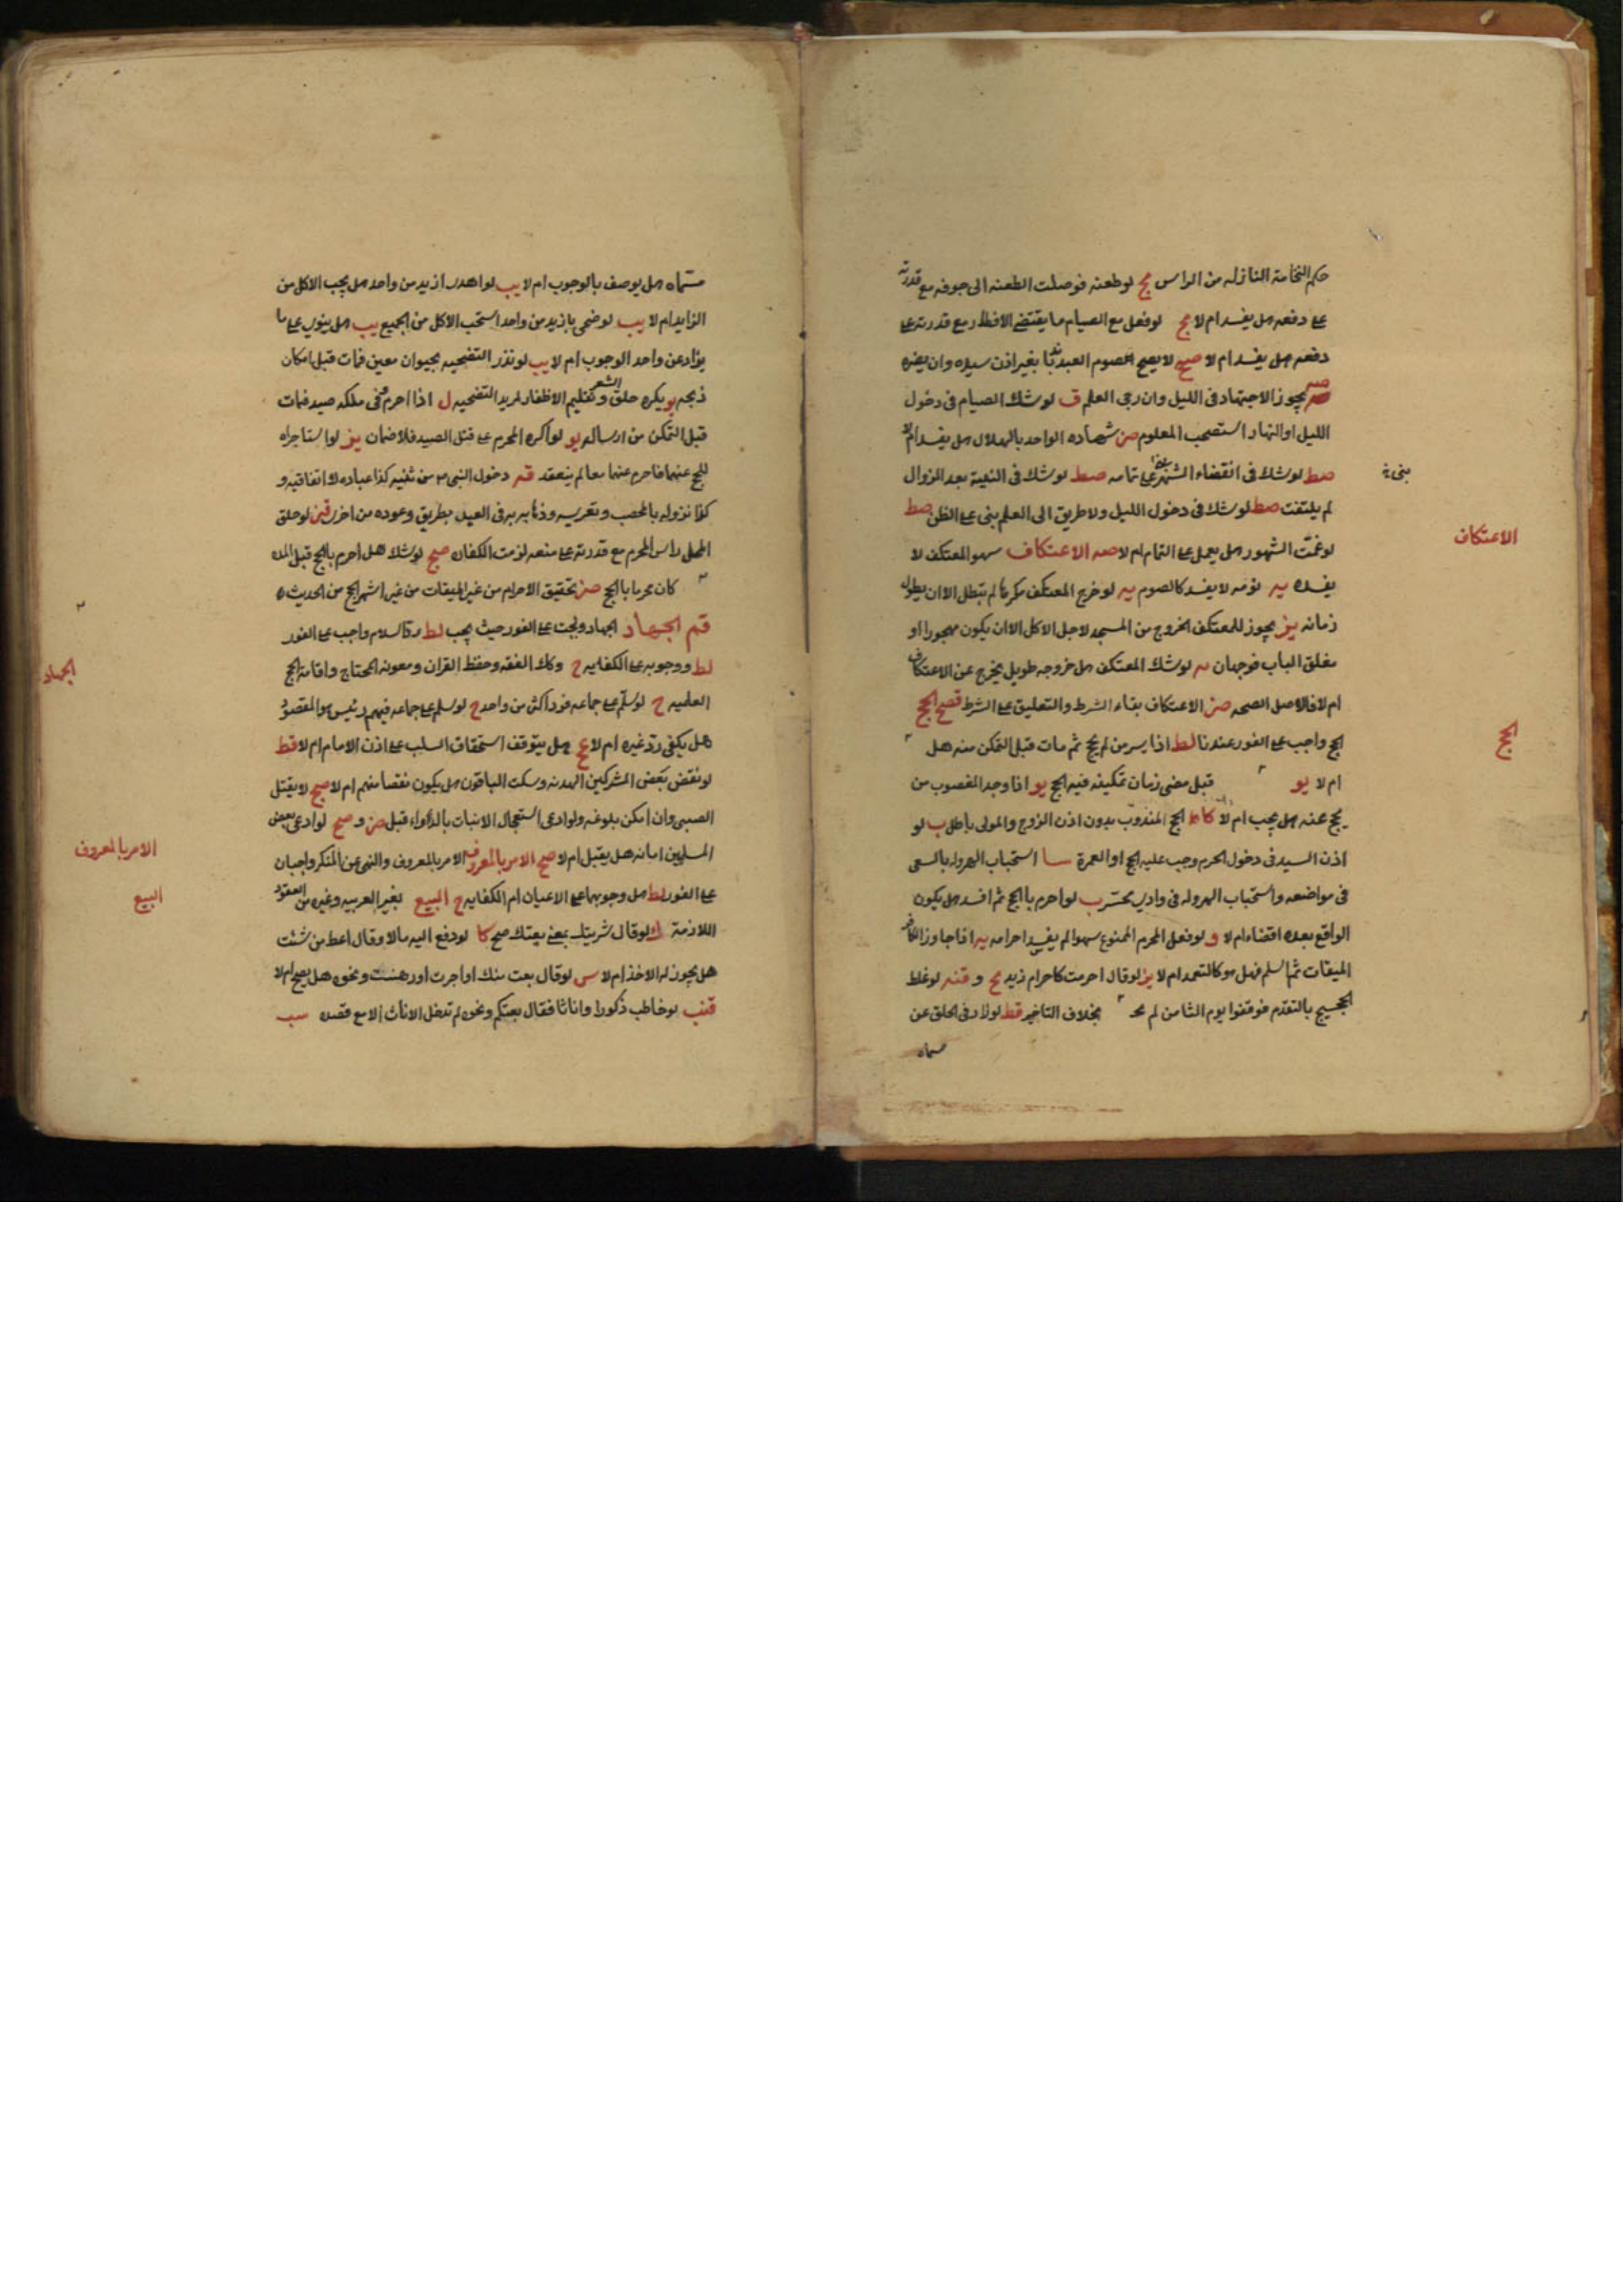 حكم النخامة النازله من الراس مح لو طعنه فوصلت الطعنه الى جوفه مع قدرته
على دفعه هل يفسد ام لا مح لو فعل مع الصيام ما يقتضي الافطار مع قدرته على
دفعه هل يفسد ام لا صح لا يصح الصوم العبد بغير اذن سيده وان يضره
يجوز الاجتهاد فى الليل وان رجى العلم ق لو شك الصيام فى دخول
الليل او النهار استصحب المعلوم صن شهاده الواحد بالهلال هل يفسد ام لا
صط لو شك فى انقضاء الشهر على تمامه صط لو شك فى النية بعد الزوال
لم يلتفت صط لو شك فى دخول الليل ولا طريق الى العلم بنى على الظن صط
لو غمت الشهور هل يعمل على التمام ام لا صه الاعتكاف سهو المعتكف لا
يفسده يه نومه لا يفسد كالصوم يه لو خرج المعتكف مكرها لم تبطل الا ان يطول
زمانه يز يجوز للمعتكف الخروج من المسجد لاجل الاكل الا ان يكون مهجورا او
مغلق الباب فوجهان لو شك المعتكف هل خروجه طويل يخرج عن الاعتكاف
ام لا فالاصل الصحه صز الاعتكاف بقاء الشرط والتعليق على الشرط قصح الحج
الحج واجب على الفور عندنا لط اذا يسر من لم يحج ثم مات قبل التمكن منه هل
ام لا يو قبل مضى زمان تمكينه فيه الحج يو اذا وجد المغصوب من
يحج عنه هل يجب ام لا كاط الحج المندوب بدون اذن الزوج والمولى باطل ب لو
اذن السيد فى دخول الحرم وجب عليه الحج او العمرة سا استحباب الهروله بالسعى
فى مواضعه واستحباب الهروله فى وادى محسر ب لو احرم بالحج ثم افسد هل يكون
الواقع بعده اقتضاء ام لا و لو فعل المحرم الممنوع سهوا لم يفسد احرامه يه اذا جاوز الكافر
الميقات ثم اسلم فهل هو كالتعمد ام لا يز لو قال احرمت كاحرام زيد مح و قنه لو غلط
الحجيج بالتقدم فوقفوا يوم الثامن لم بخلاف التاخير قط لو زاد فى الحلق عن
مسماه
بنى
الاعتكاف
الحج
مسماه هل يوصف بالوجوب ام لا يب لو اهدى ازيد من واحد هل يجب الاكل من
الزايد ام لا يب لو ضحى بازيد من واحد استحب الاكل من الجميع يب هل ينوى على ما
يزاد عن واحد الوجوب ام لا يب لو نذر التضحيه بحيوان معين فمات قبل امكان
ذبحه يو يكره حلق الشعر وتقليم الاظفار لمريد التضحيه ل اذا احرم وفى ملكه صيد فمات
قبل التمكن من ارساله يو لو اكره المحرم على قتل الصيد فلا ضمان يز لو استاجراه
للحج عنهما فاحرم عنهما معا لم ينعقد قه دخول النبى من ثنيه كذا عباده لا اتفاقيه و
كذا نزوله بالمحصب وتعريسه وذهابه فى العيد بطريق وعوده من اخرى قنز لو حلق
المحل راس المحرم مع قدرته على منعه لزمت الكفاره صح لو شك هل احرم بالحج قبل
كان محرما بالحج صز تحقيق الاحرام من غير الميقات من غير اشهر الحج من الحديث
قم الجهاد الجهاد ولجت على الفور حيث يجب لط رد السلام واجب على الفور
لط ووجوبه على الكفايه ح وكك الفقه وحفظ القران ومعونه المحتاج واقامة الحج
العلميه ح لو سلم على جماعه فرد اكثر من واحد ح لو سلم على جماعه فيهم رئيس هو المقصود
هل يكفى رد غيره ام لا ع هل يتوقف استحقاق السلب على اذن الامام ام لا قط
لو نقض بعض المشركين الهدنه وسكت الباقون هل يكون نقضا منهم ام لا صح لا يقتل
الصبى وان امكن بلوغه ولو ادعى استعجال الانبات بالدواء قبل صن و صح لو ادعى بعض
المسلمين امانه هل يقبل ام لا صح الامر بالمعروف الامر بالمعروف والنهى عن المنكر واجبان
على الفور لط هل وجوبهما على الاعيان ام الكفايه ح البيع بغير العربيه وغيره من العقود
اللازمة لو قال شريتك بمعنى بعتك صح كا لو دفع اليه مالا وقال اعط من شئت
هل يجوز له الاخذ ام لا س لو قال بعت منك او اجرت او رهنت ونحوه هل يصح ام لا
قنب لو خاطب ذكورا واناثا فقال بعتكم ونحوه لم تدخل الاناث الا مع قصده سب
الجهاد
الامر بالمعروف
البيع